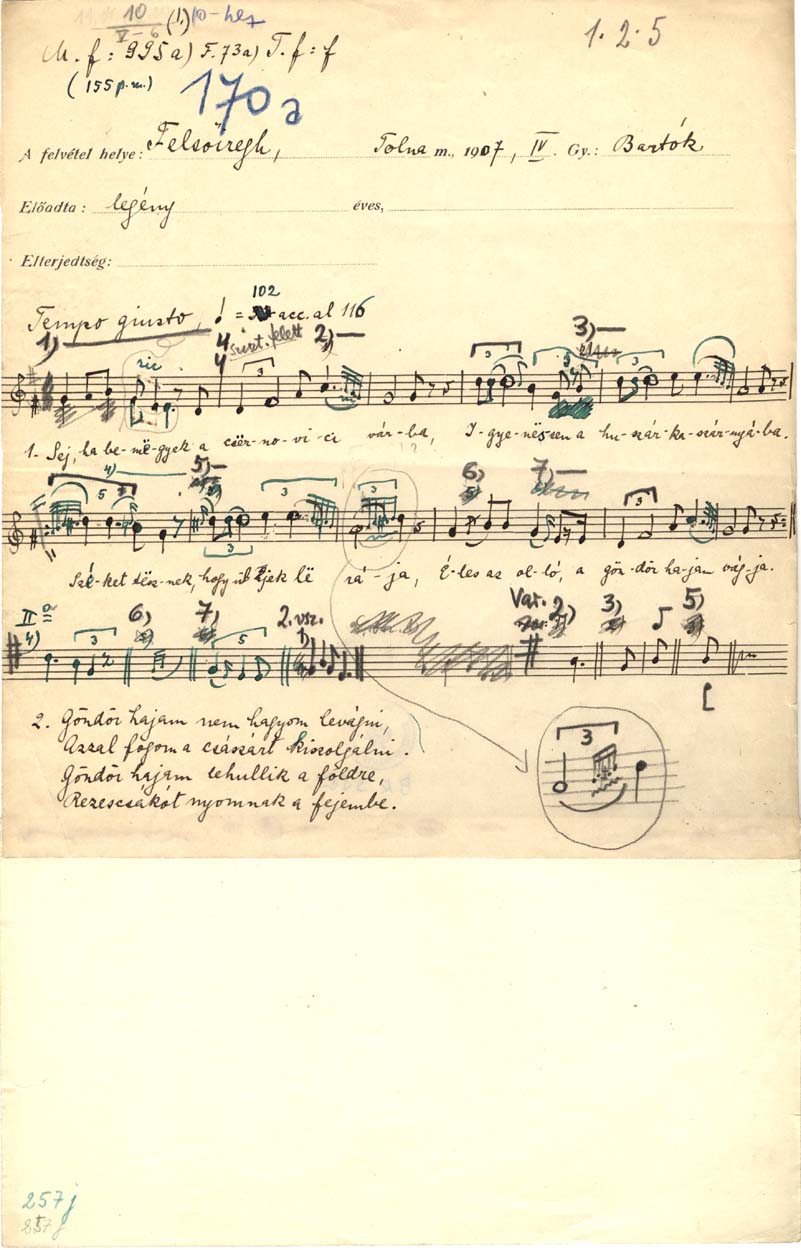 10 (1.) 10-hez
V-6
1·2·5
M. f: 995a) F. 73a) T. f: f
(155 p.m.)
170a
A felvétel helye: Felsőiregh, Tolna m., 1907, IV. Gy.: Bartók
Előadta: legény éves,
Elterjedtség:
Tempo giusto, = 102 acc. al 116
1) 4 4 szist. felett 2) 3)
3 3 5 3
1. Sej, ha be-më-gyek a csër-no-vi-ci vár-ba, I-gye-nës-sen a hu-szár-ka-szár-nyá-ba.
4) 5) 6) 7)
5 3 3 3 3
Szé-ket tësz-nek, hogy üljek lë rá-ja, É-les az ol-ló, a gön-dör ha-jam vág-ja.
II 6) 7) 2. vsz. Var. 2) 3) 5)
4) 3 5 1)
2. Göndör hajam nem hagyom levágni,
Azzal fogom a császárt kiszolgálni.
Göndör hajam lehullik a földre,
Rezescsákót nyomnak a fejembe.
3
257j
257j